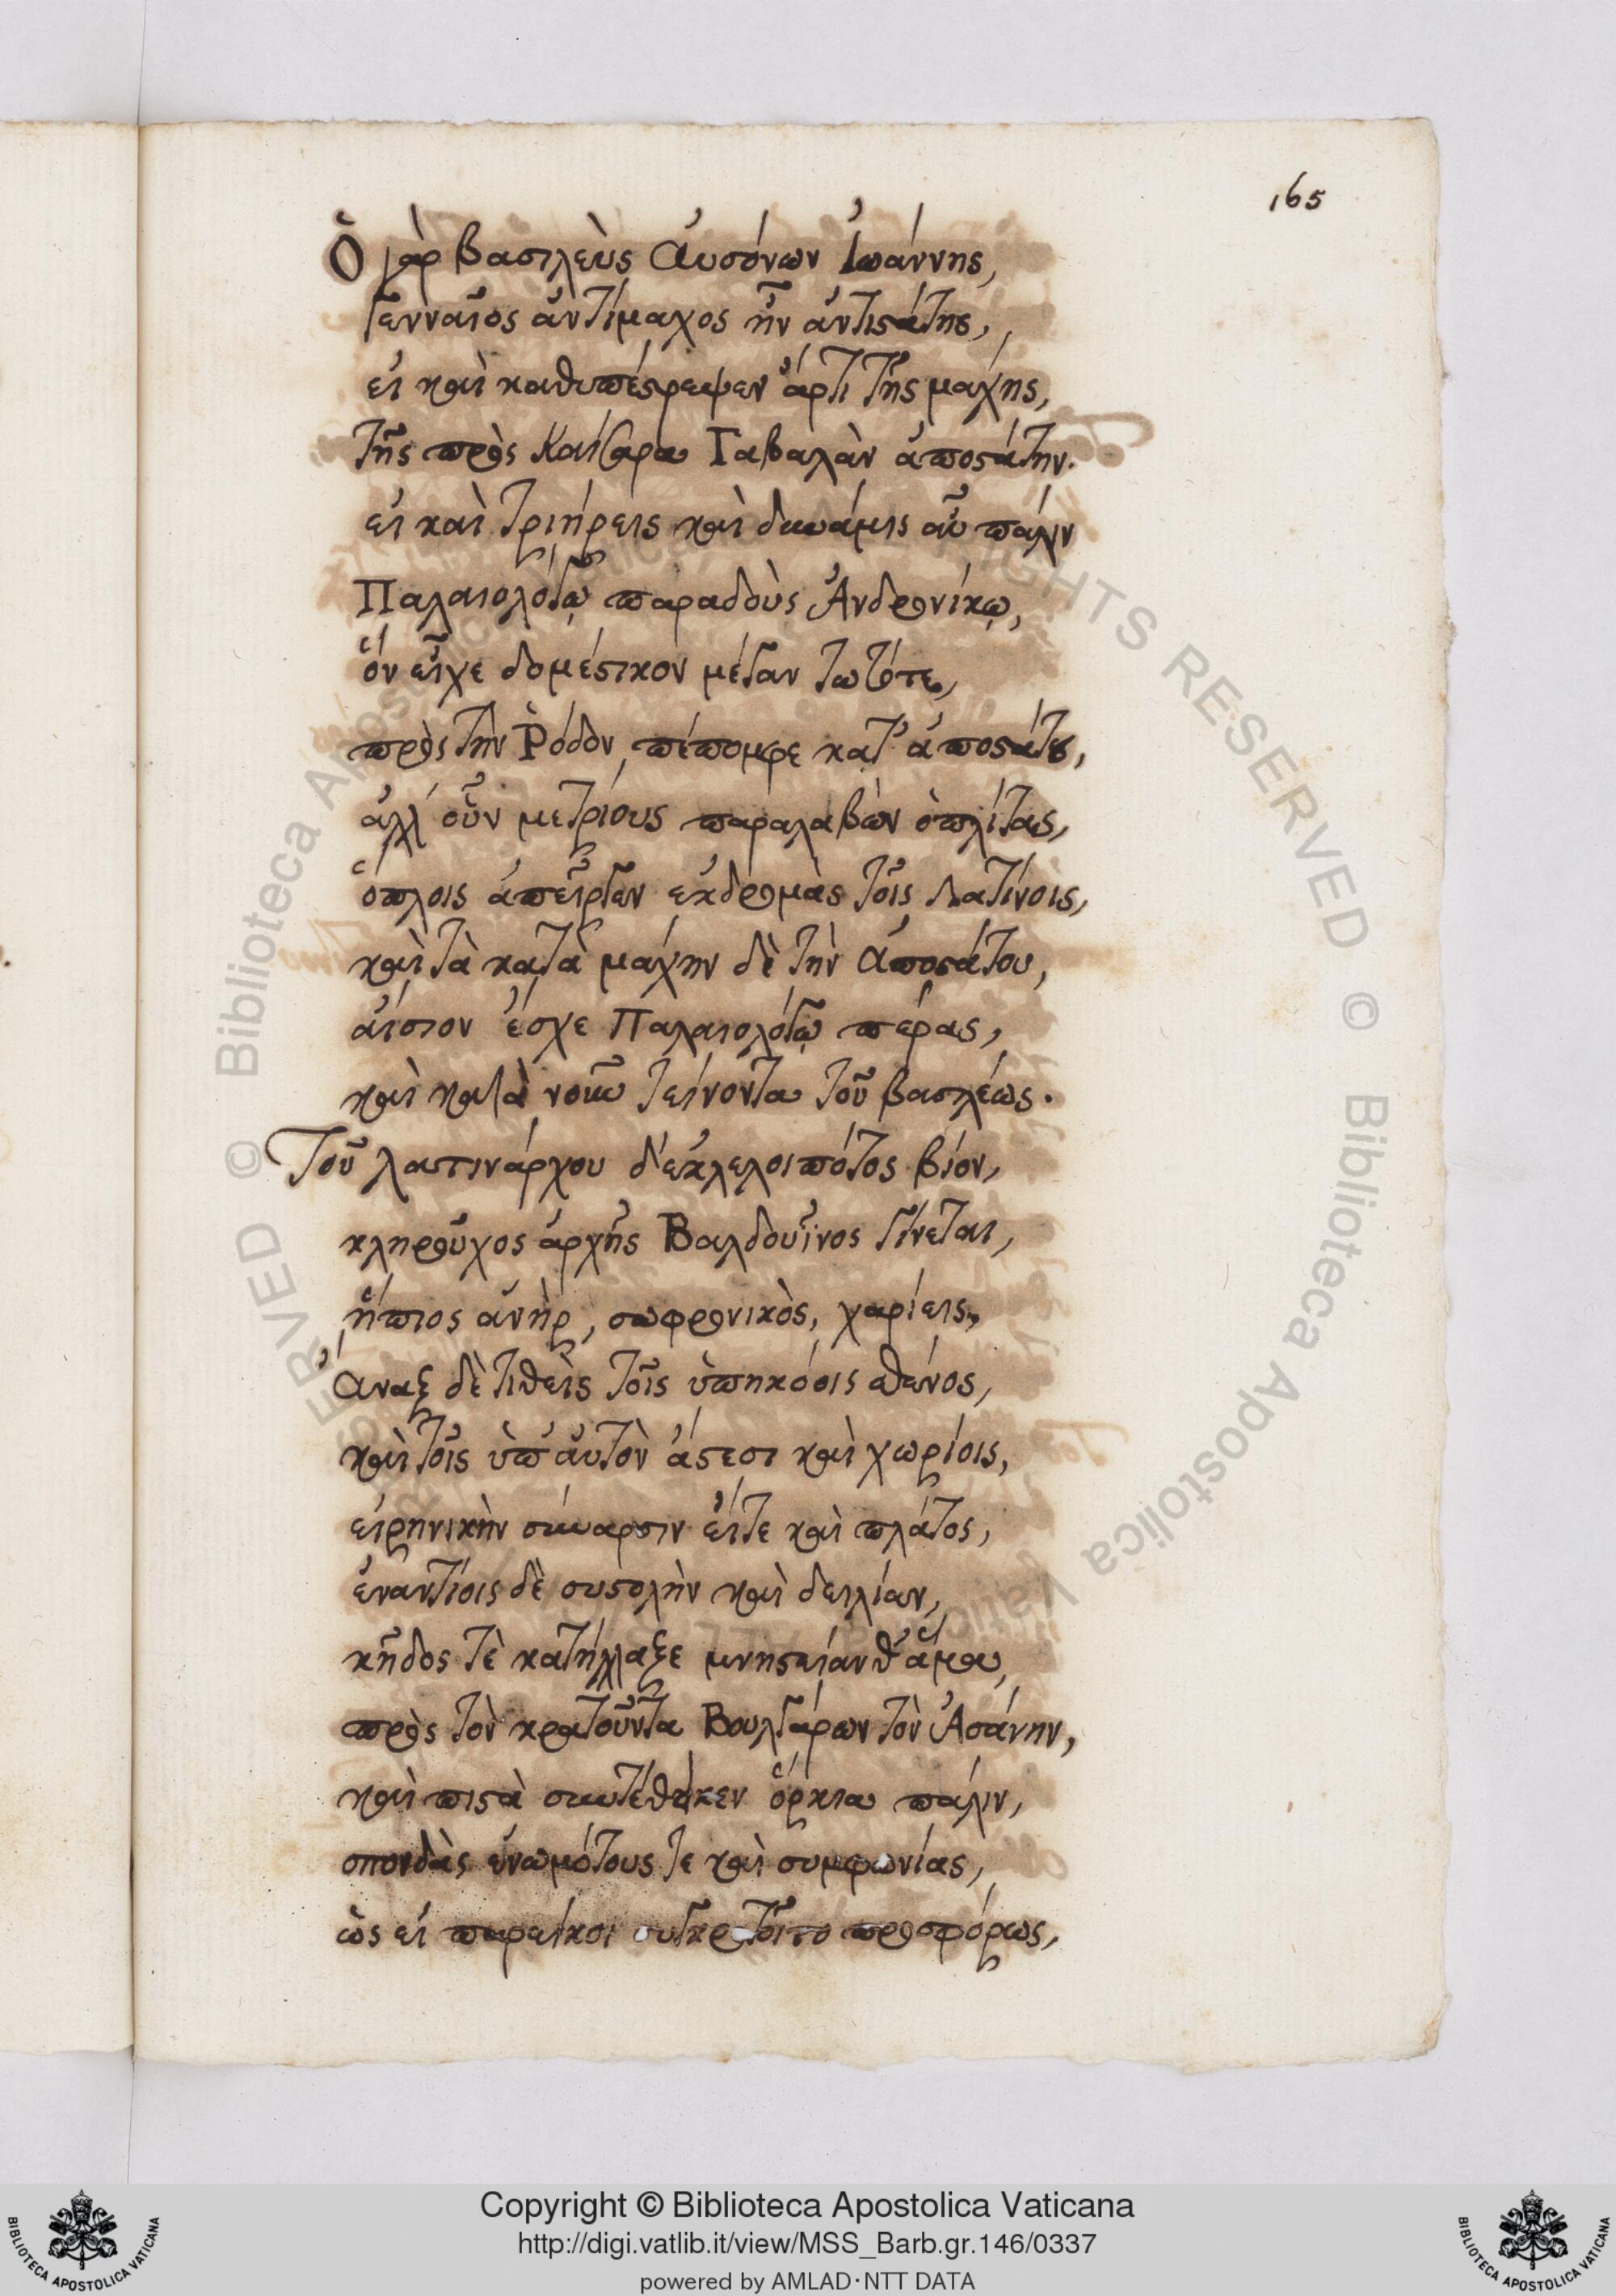 165
Ὁ γὰρ βασιλεὺς Αὐσόνων Ἰωάννης,
γενναῖος ἀντίμαχος ἦν ἀντιστάτης,
εἰ καὶ καθυπέστρεψεν ἄρτι τῆς μάχης,
τῆς πρὸς Καίσαρα Γαβαλὰν ἀποστάτην.
εἰ καὶ τριήρεις καὶ δυνάμεις αὖ πάλιν
Παλαιολόγῳ παραδοὺς Ἀνδρονίκῳ,
ὃν εἶχε δομέστικον μέγαν τῷ τότε,
πρὸς τὴν Ῥόδον πέπομφε κατ' ἀποστάτου,
ἀλλ' οὖν μετρίους παραλαβὼν ὁπλίτας,
ὅπλοις ἀπεῖργεν ἐκδρομὰς τοῖς Λατίνοις,
καὶ τὰ κατὰ μάχην δὲ τὴν ἀποστάτου,
αἴσιον ἔσχε Παλαιολόγῳ πέρας,
καὶ κατὰ νοῦν τείνοντα τοῦ βασιλέως.
Τοῦ λατινάρχου δ' ἐκλελοιπότος βίον,
κληροῦχος ἀρχῆς Βαλδουῖνος γίνεται,
ἤπιος ἀνὴρ, σωφρονικὸς, χαρίεις,
Ἄναξ δὲ τιθεὶς τοῖς ὑπηκόοις σθένος,
καὶ τοῖς ὑπ' αὐτὸν ἄστεσι καὶ χωρίοις,
εἰρηνικὴν σύναρσιν εἴτε καὶ πλάτος,
ἐναντίοις δὲ συστολὴν καὶ δειλίαν,
κῆδός τε κατήλλαξε μνηστείαν θ' ἅμα,
πρὸς τὸν κρατοῦντα Βουλγάρων τὸν Ἀσάνην,
καὶ πιστὰ συντέθεικεν ὅρκια πάλιν,
σπονδὰς ἐνωμότους τε καὶ συμφωνίας,
ὡς εἰ παρείκοι συγκροτοῖτο προσφόρως,
Copyright © Biblioteca Apostolica Vaticana
http://digi.vatlib.it/view/MSS_Barb.gr.146/0337
powered by AMLAD·NTT DATA